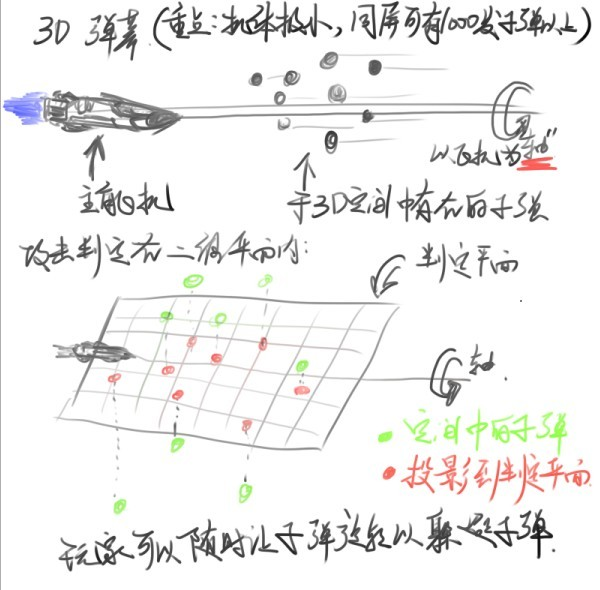 3D 弹幕 (重点:机体极小,同屏可有1000发子弹以上)
以飞机为"轴"
主角飞机
于3D空间中存在的子弹
攻击判定在二维平面内:
判定平面
轴
空间中的子弹
投影到判定平面
玩家可以随时让子弹旋转以躲避子弹.